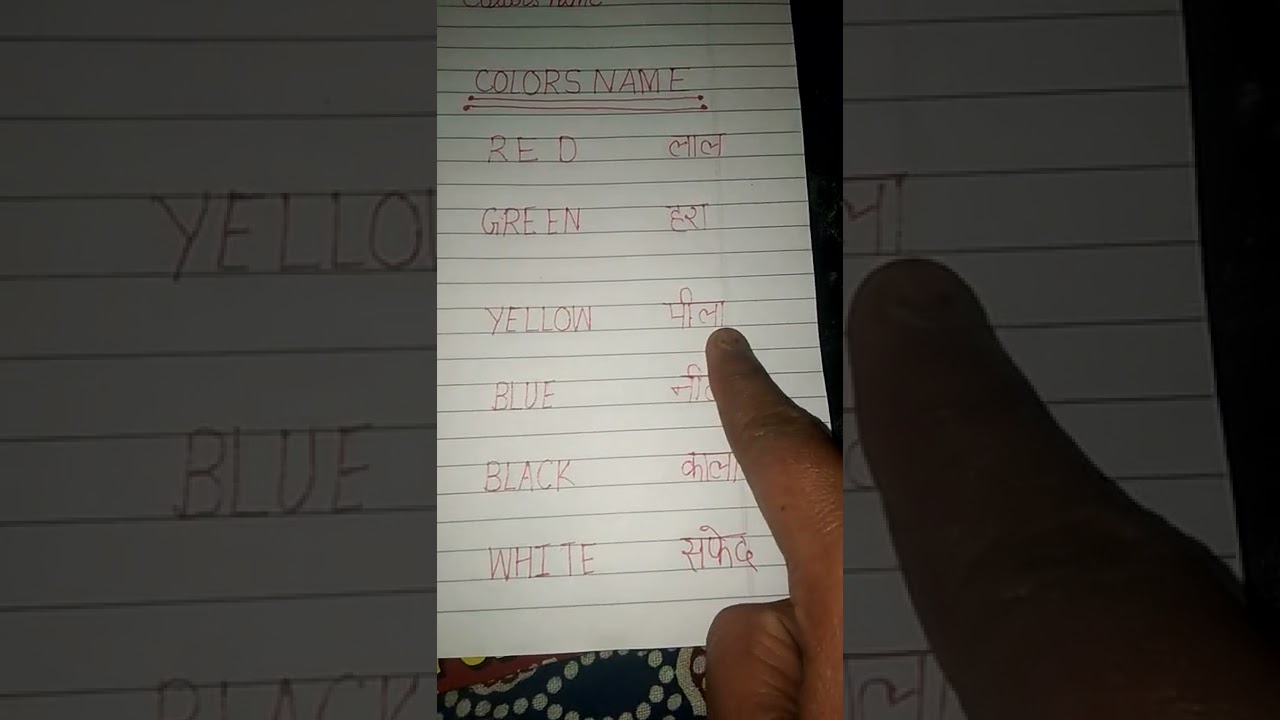 COLORS NAME
RED लाल
GREEN हरा
YELLOW पीला
BLUE
BLACK काला
WHITE सफेद